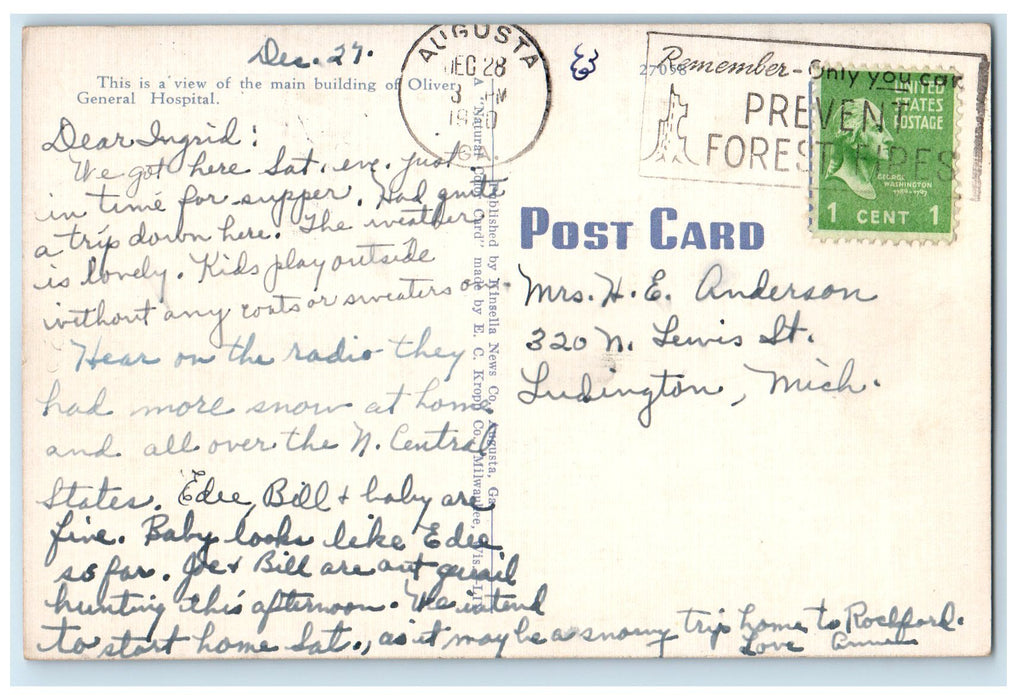 Dec. 27.
This is a view of the main building of Oliver
General Hospital.
Dear Ingrid:
We got here Sat. eve. just
in time for supper. Had quite
a trip down here. The weather
is lovely. Kids play outside
without any coats or sweaters on.
Hear on the radio they
had more snow at home
and all over the N. Central
States. Edee, Bill + baby are
fine. Baby looks like Edee
so far. Joe + Bill are out quail
hunting this afternoon. We intend
to start home Sat., as it may be a snowy trip home to Rockford.
Love Anne
Published by Kinsella News Co., Augusta, Ga.
A "Natural Color Card" made by E. C. Kropp Co., Milwaukee, Wis.
AUGUSTA
DEC 28
3 PM
19 0
GA.
27058
Remember- Only you can
PREVENT
FOREST FIRES
UNITED
STATES
POSTAGE
GEORGE
WASHINGTON
1789-1797
1 CENT 1
POST CARD
Mrs. H. E. Anderson
320 N. Lewis St.
Ludington, Mich.